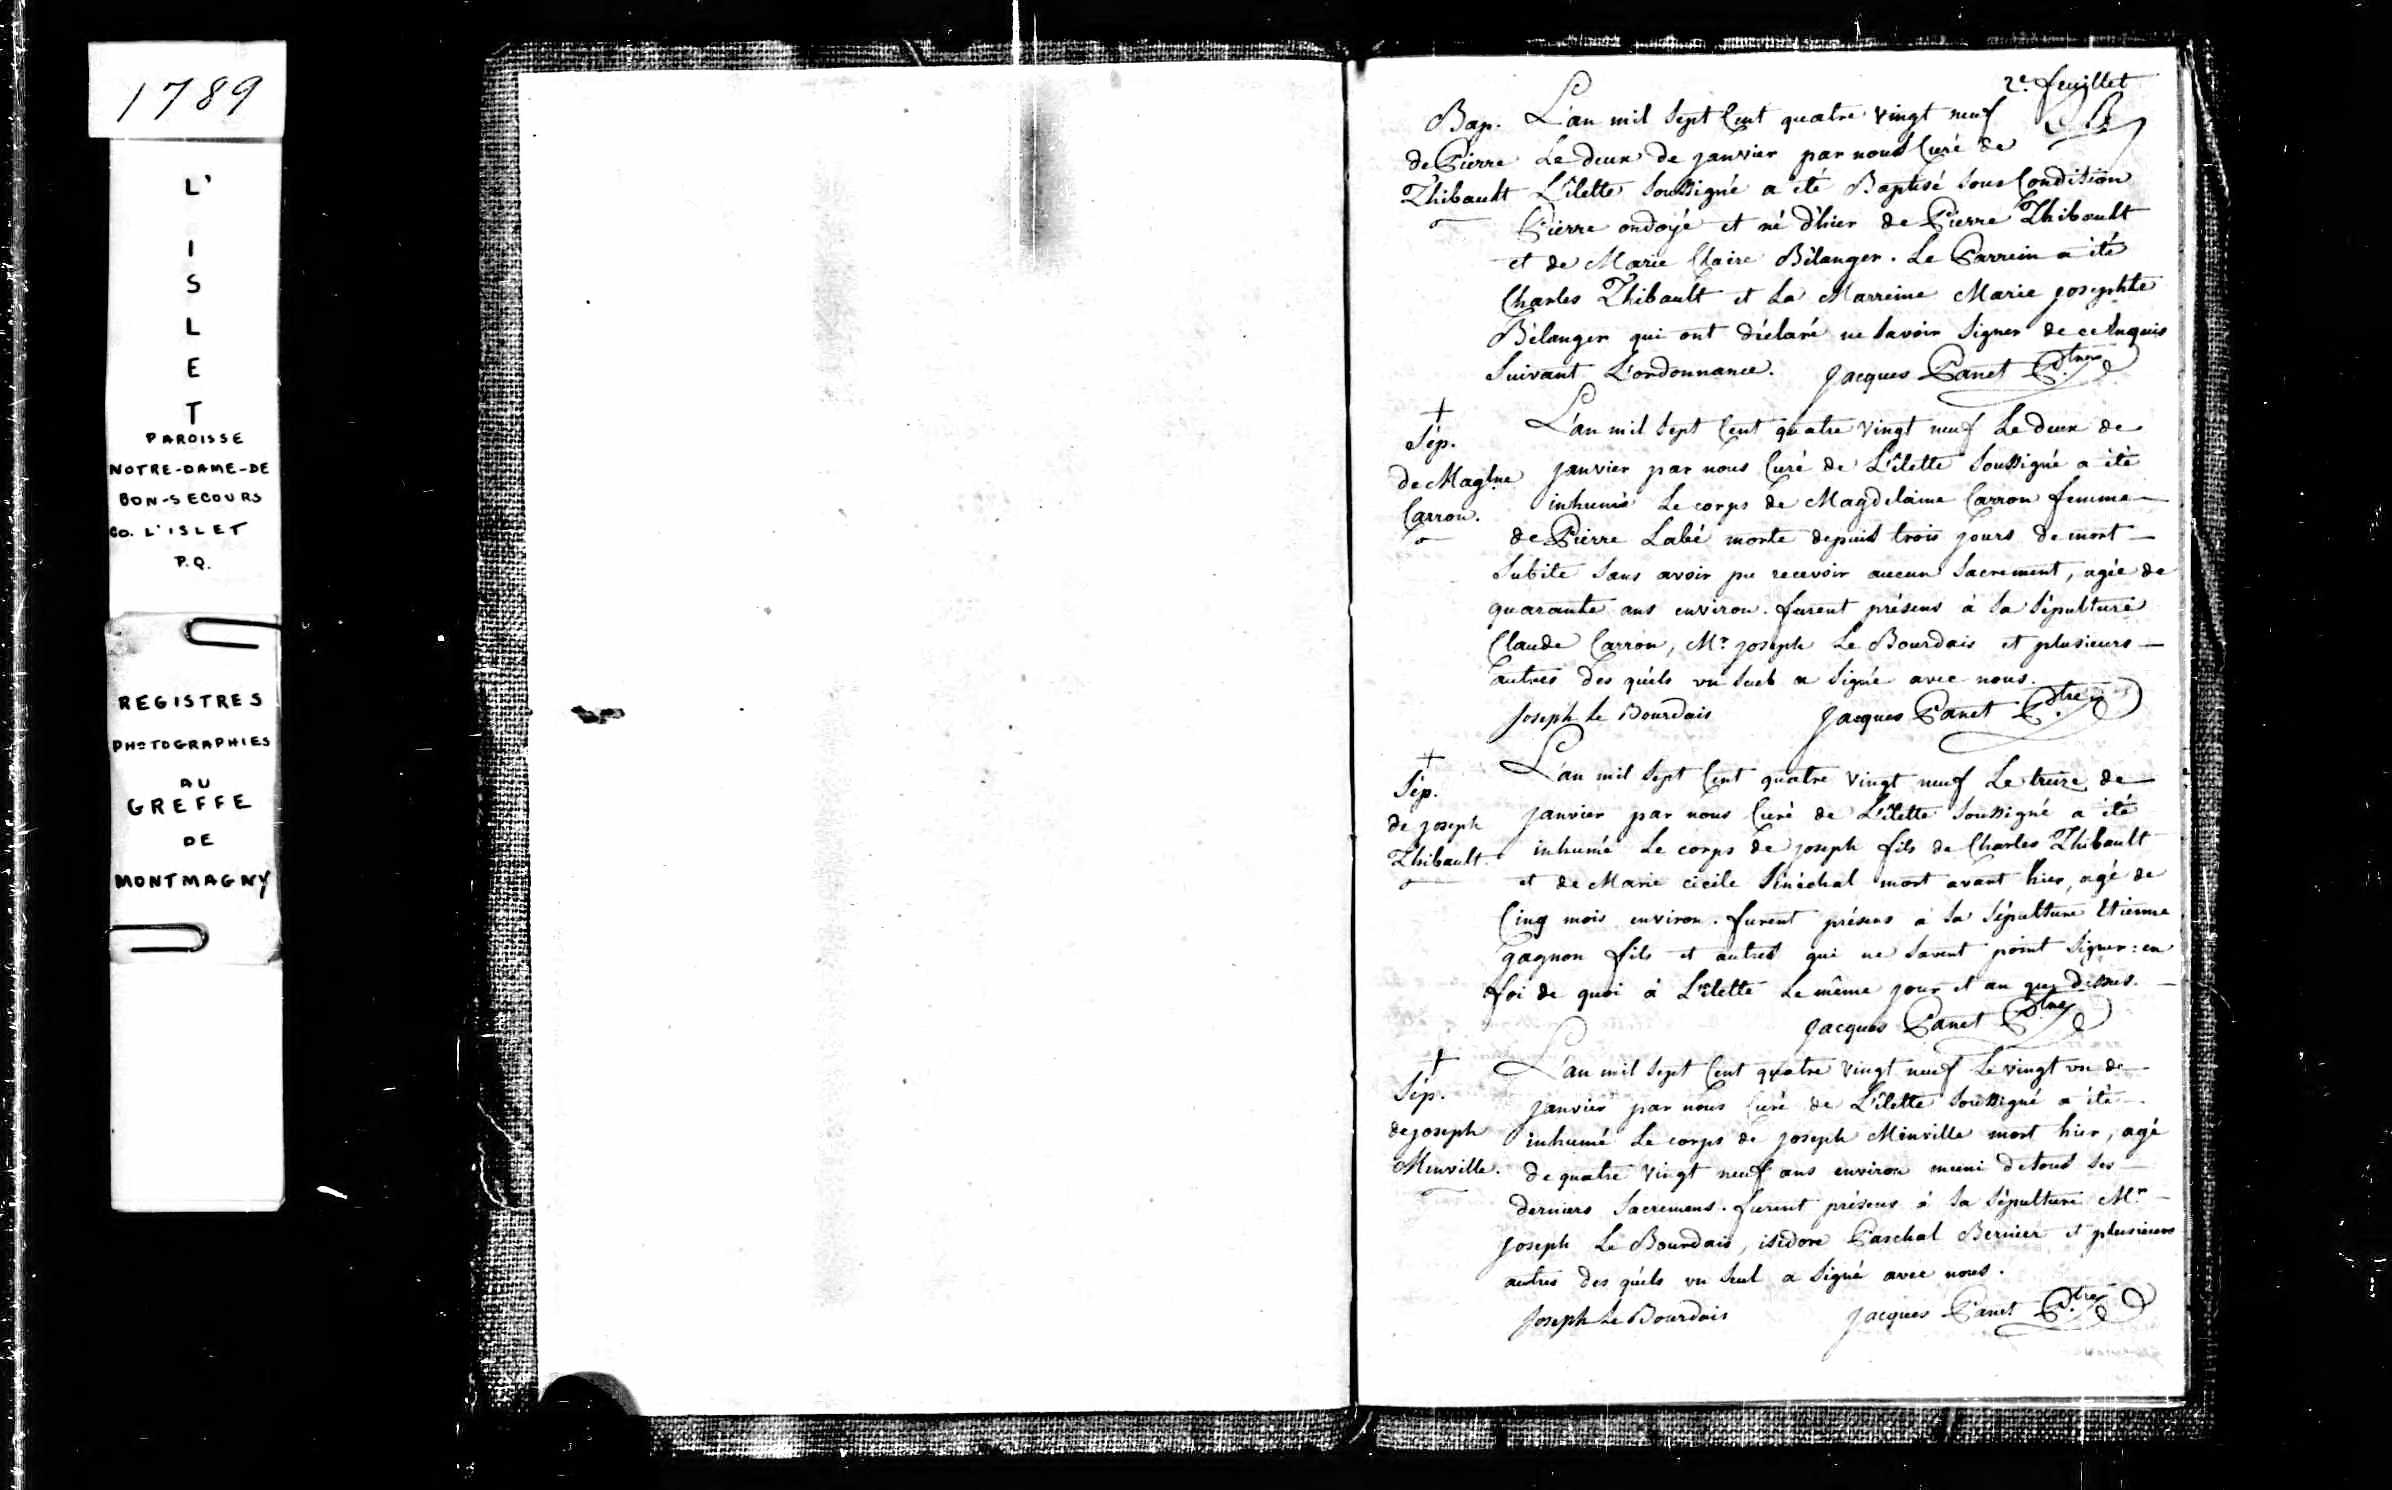 1789
L'
I
S
L
E
T
PAROISSE
NOTRE-DAME-DE
BON-SECOURS
CO. L'ISLET
P.Q.
REGISTRES
PHOTOGRAPHIES
AU
GREFFE
DE
MONTMAGNY
2e. feuillet
Bap.
de Pierre
Thibault
L'an mil sept Cent quatre vingt neuf
Le deux de janvier par nous Curé de
L'ilette soussigné a été Baptisé sous Condition
Pierre ondoyé et né d'hier de Pierre Thibault
et de Marie Claire Bélanger. Le Parrein a été
Charles Thibault et La Marreine Marie josephte
Bélanger qui ont déclaré ne savoir signer de ce Enquis
suivant L'ordonnance. Jacques Panet Ptre
†
Sép.
de Maglne
Carron.
L'an mil sept Cent quatre vingt neuf Le deux de
janvier par nous Curé de L'ilette soussigné a été
inhumé Le corps de Magdelaine Carron femme
de Pierre Labé morte depuis trois jours de mort
subite sans avoir pu recevoir aucun sacrement, agée de
quarante ans environ. furent présens à sa sépulture
Claude Carron, Mr. joseph Le Bourdais et plusieurs
autres des quéls un seul a signé avec nous.
Joseph Le Bourdais Jacques Panet Ptre
†
Sép.
de joseph
Thibault.
L'an mil sept Cent quatre vingt neuf Le treize de
janvier par nous Curé de L'ilette soussigné a été
inhumé Le corps de joseph fils de Charles Thibault
et de Marie cicile Sinéchal mort avant hier, agé de
Cinq mois environ. furent présens à sa sépulture Etienne
gagnon fils et autres qui ne savent point signer: en
foi de quoi à L'ilette Le même jour et an que dessus.
Jacques Panet Ptre
†
Sép.
de joseph
Minville.
L'an mil sept Cent quatre vingt neuf Le vingt un de
janvier par nous Curé de L'ilette soussigné a été
inhumé Le corps de joseph Minville mort hier, agé
de quatre vingt neuf ans environ muni de tous ses
derniers sacremens. furent présens à sa sépulture Mr.
joseph Le Bourdais, isidore Paschal Bernier et plusieurs
autres des quéls un seul a signé avec nous.
Joseph Le Bourdais Jacques Panet Ptre